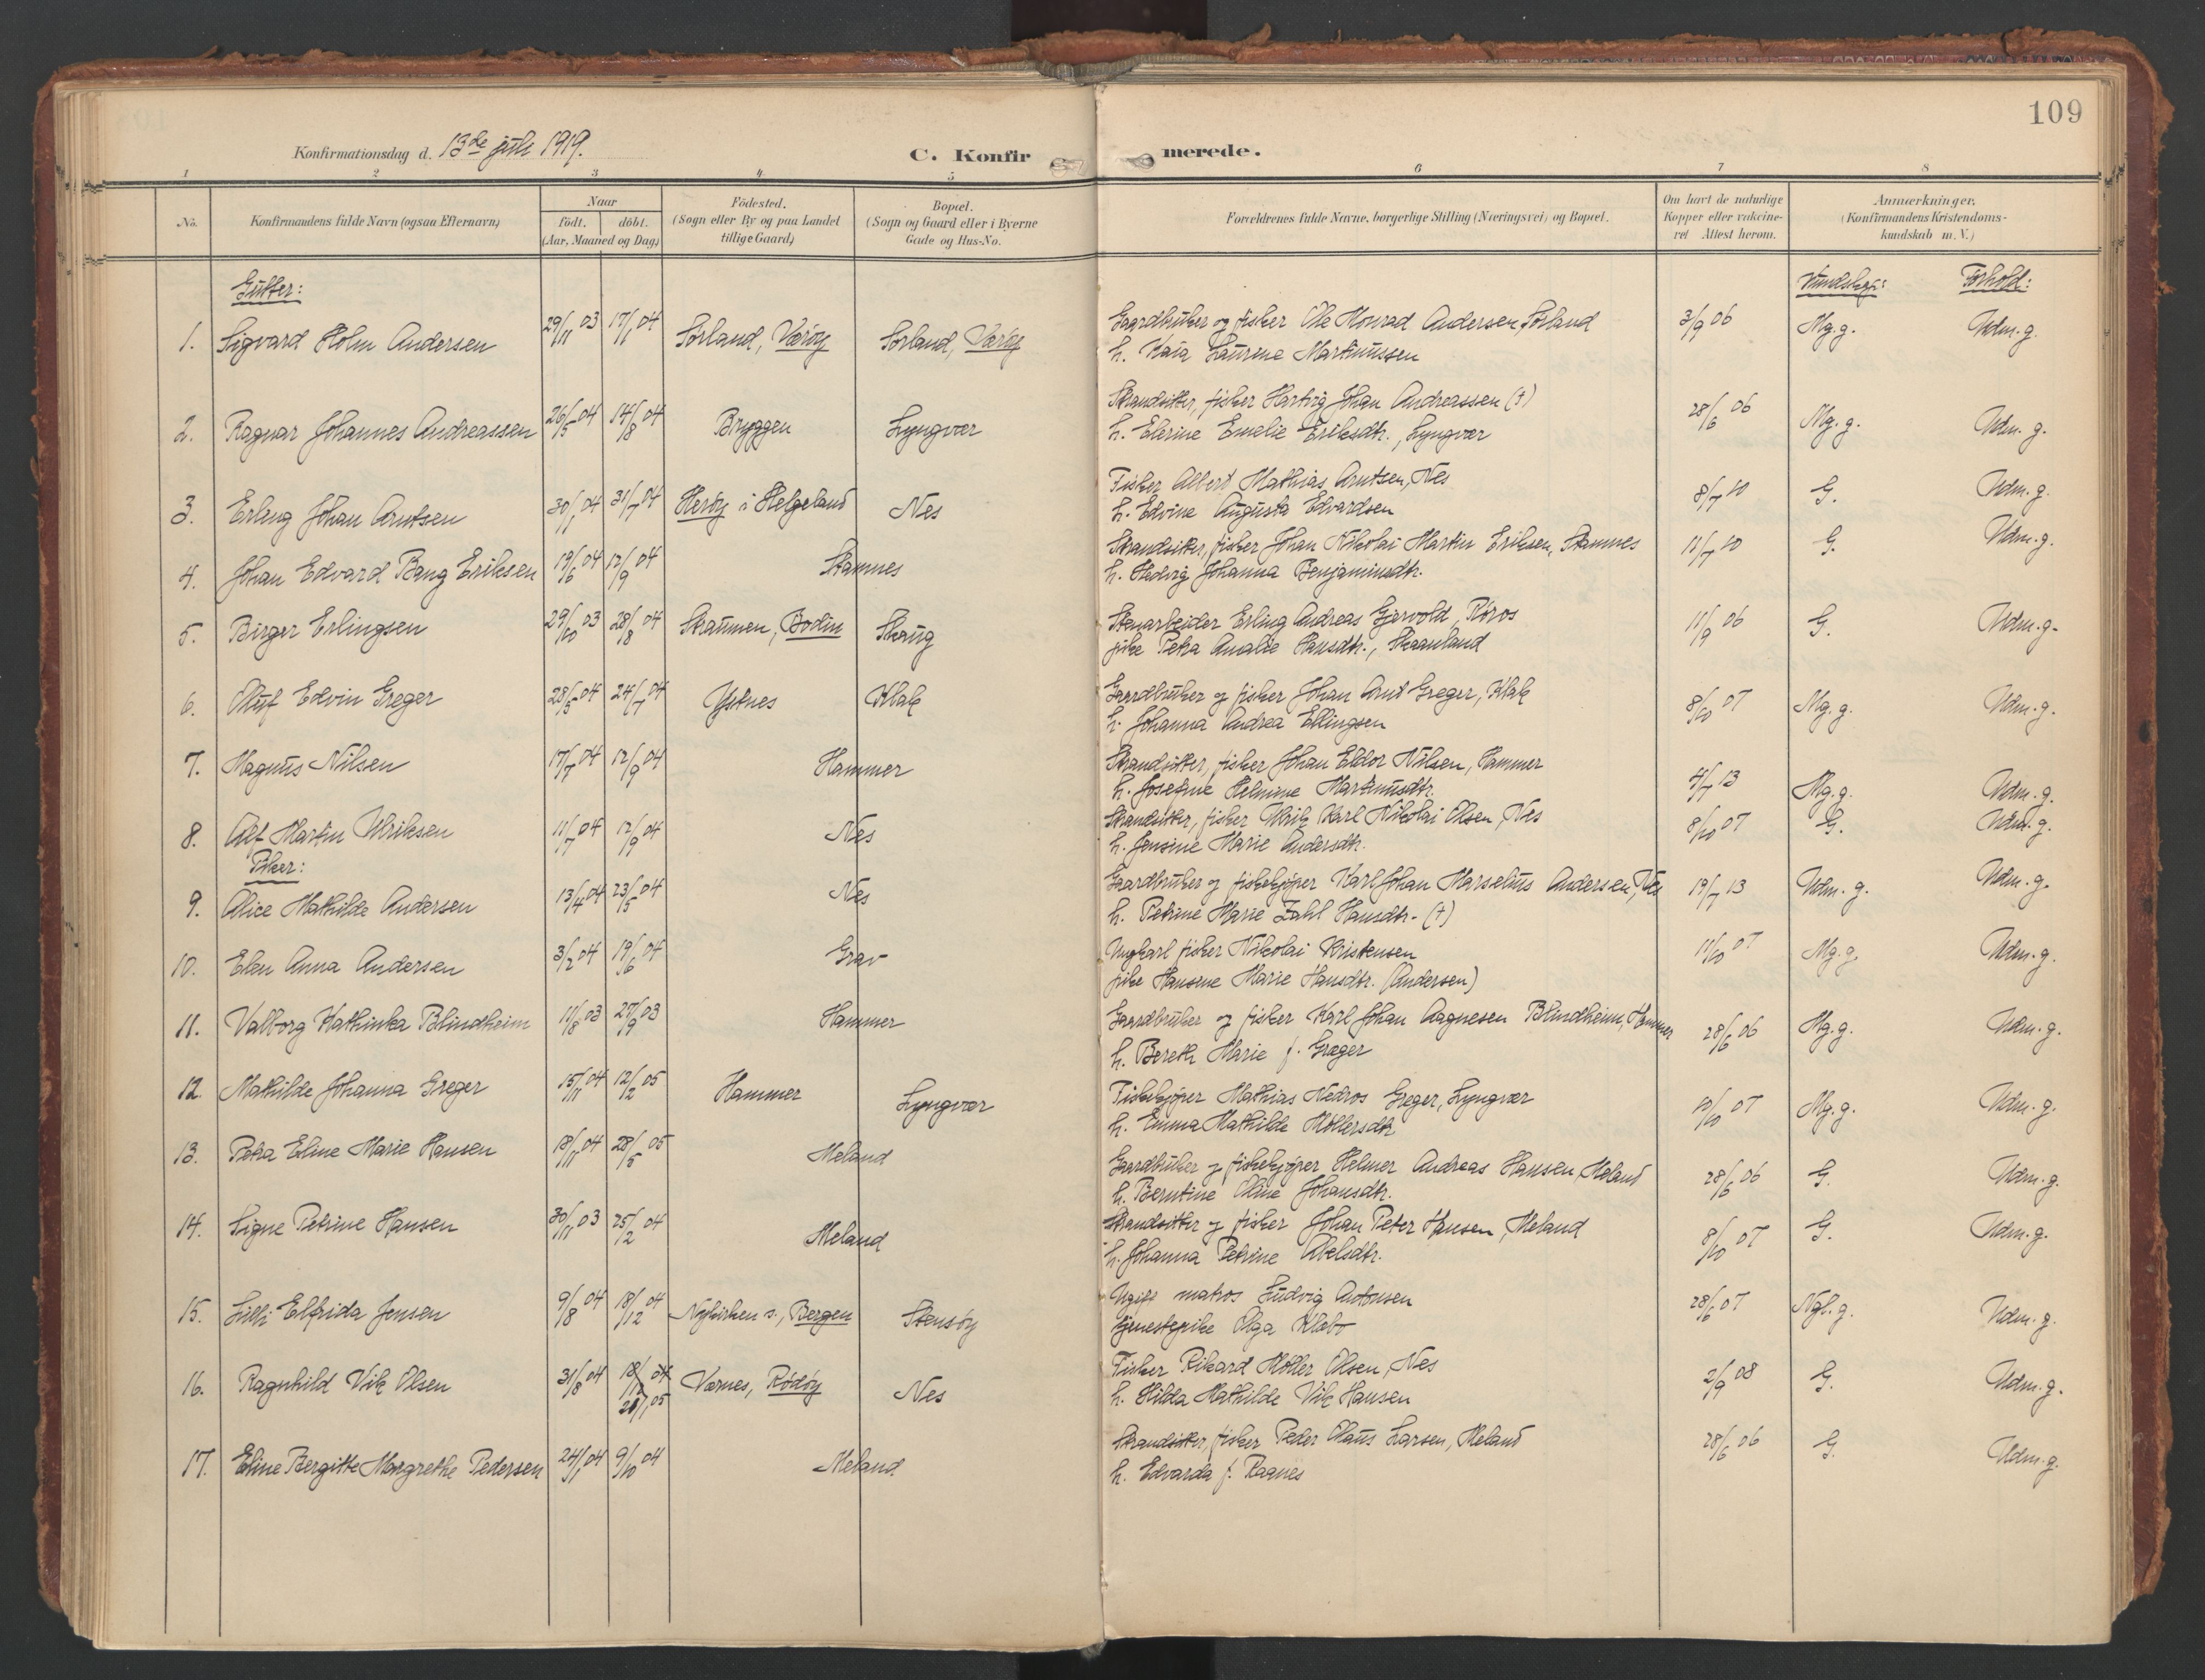 109
Konfirmationsdag d. 13de juli 1919.
C. Konfirmerede.
1 2 3 4 5 6 7 8
No. Konfirmandens fulde Navn (ogsaa Efternavn) Naar født. døbt. (Aar, Maaned og Dag) Födested. (Sogn eller By og paa Landet tillige Gaard) Bopæl. (Sogn og Gaard eller i Byerne Gade og Hus-No. Forældrenes fulde Navne, borgerlige Stilling (Næringsvei) og Bopæl. Om havt de naturlige Kopper eller vakcineret Attest herom. Anmærkninger. (Konfirmandens Kristendomskundskab m. V.)
Gutter: Kundskap: Forhold:
1. Sigvard Holm Andersen 29/11 03 17/1 04 Sørland, Værøy Sørland, Værøy Gaardbruker og fisker Ole Monrad Andersen, Sørland 3/9 06 Mg. g. Udm. g.
h. Kaia Laurene Martinussen
2. Ragnar Johannes Andreassen 26/5 04 14/8 04 Bryggen Lyngvær Strandsitter, fisker Hartvig Johan Andreassen (†) 28/6 06 Mg. g. Udm. g.
h. Elerine Emelie Eriksdtr., Lyngvær
3. Erling Johan Arntsen 30/1 04 31/7 04 Herøy i Helgeland Nes Fisker Albert Mathias Arntsen, Nes 8/7 10 G. Udm. g.
h. Edvine Augusta Edvardsen
4. Johan Edvard Bang Eriksen 19/6 04 12/9 04 Stamnes Strandsitter, fisker Johan Nikolai Martin Eriksen, Stamnes 11/7 10 G. Udm. g.
h. Hedvig Johanna Benjaminsdtr.
5. Birger Erlingsen 29/10 03 28/8 04 Straumen, Bodin Skaug Stenarbeider Erling Andreas Gjervold, Røros 11/9 06 G. Udm. g.
pike Petra Amalie Hansdtr., Skaanland
6. Oluf Edvin Greger 28/5 04 24/7 04 Ystnes Klak Gaardbruker og fisker Johan Arnt Greger, Klak 8/10 07 Mg. g. Udm. g.
h. Johanna Andrea Ellingsen
7. Magnus Nilsen 17/7 04 12/9 04 Hammer Strandsitter, fisker Johan Eldor Nilsen, Hammer 4/7 13 Mg. g. Udm. g.
h. Josefine Helmine Martinusdtr.
8. Alf Martin Ulriksen 11/7 04 12/9 04 Nes Strandsitter, fisker Ulrik Karl Nikolai Olsen, Nes 8/10 07 G. Udm. g.
h. Jensine Marie Andersdtr.
Piker:
9. Alice Mathilde Andersen 13/4 04 23/5 04 Nes Gaardbruker og fiskekjøper Karl Johan Marselius Andersen, Nes 19/7 13 Udm. g. Udm. g.
h. Petrine Marie Zahl Hansdtr. (†)
10. Elen Anna Andersen 3/2 04 19/6 04 Grav Ungkarl fisker Nikolai Kristensen 11/10 07 Mg. g. Udm. g.
pike Hansine Marie Hansdtr. (Andersen)
11. Valborg Kathinka Blindheim 11/8 03 27/9 03 Hammer Gaardbruker og fisker Karl Johan Aagnesen Blindheim, Hammer 28/6 06 Mg. g. Udm. g.
h. Bereth Marie f. Græger
12. Mathilde Johanna Greger 15/11 04 12/2 05 Hammer Lyngvær Fiskekjøper Mathias Nedros Greger, Lyngvær 10/10 07 Mg. g. Udm. g.
h. Emma Mathilde Møllersdtr
13. Petra Eline Marie Hansen 18/11 04 28/5 05 Meland Gaardbruker og fiskekjøper Helmer Andreas Hansen, Meland 28/6 06 G. Udm. g.
h. Berntine Oline Johansdtr.
14. Signe Petrine Hansen 30/11 03 25/2 04 Meland Strandsitter og fisker Johan Peter Hansen, Meland 8/10 07 G. Udm. g.
h. Johanna Petrine Abelsdtr.
15. Lilli Elfrida Jensen 9/8 04 18/12 04 Nykirken s., Bergen Stensøy Ugift matros Ludvig Antonsen 28/6 07 Ngl. g. Udm. g.
tjenestepike Olga Klæbo
16. Ragnhild Vik Olsen 31/8 04 18/12 04 21/1 05 Værnes, Rødøy Nes Fisker Rikard Møller Olsen, Nes 2/9 08 G. Udm. g.
h. Hilda Mathilde Vik Hansen
17. Eline Bergitte Margrethe Pedersen 24/1 04 9/10 04 Meland Strandsitter, fisker Peder Olaus Larsen, Meland 28/6 06 G. Udm. g.
h. Edvarda f. Ragnes